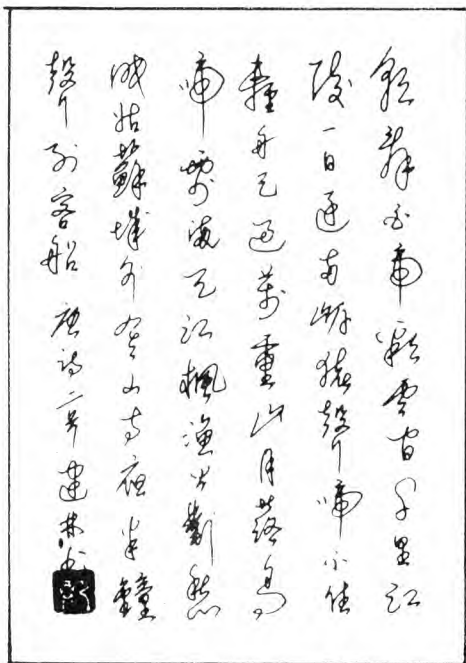 朝辭白帝彩雲間千里江
陵一日還兩岸猿聲啼不住
輕舟已過萬重山月落烏
啼霜滿天江楓漁火對愁
眠姑蘇城外寒山寺夜半鐘
聲到客船 唐詩二首 建林書